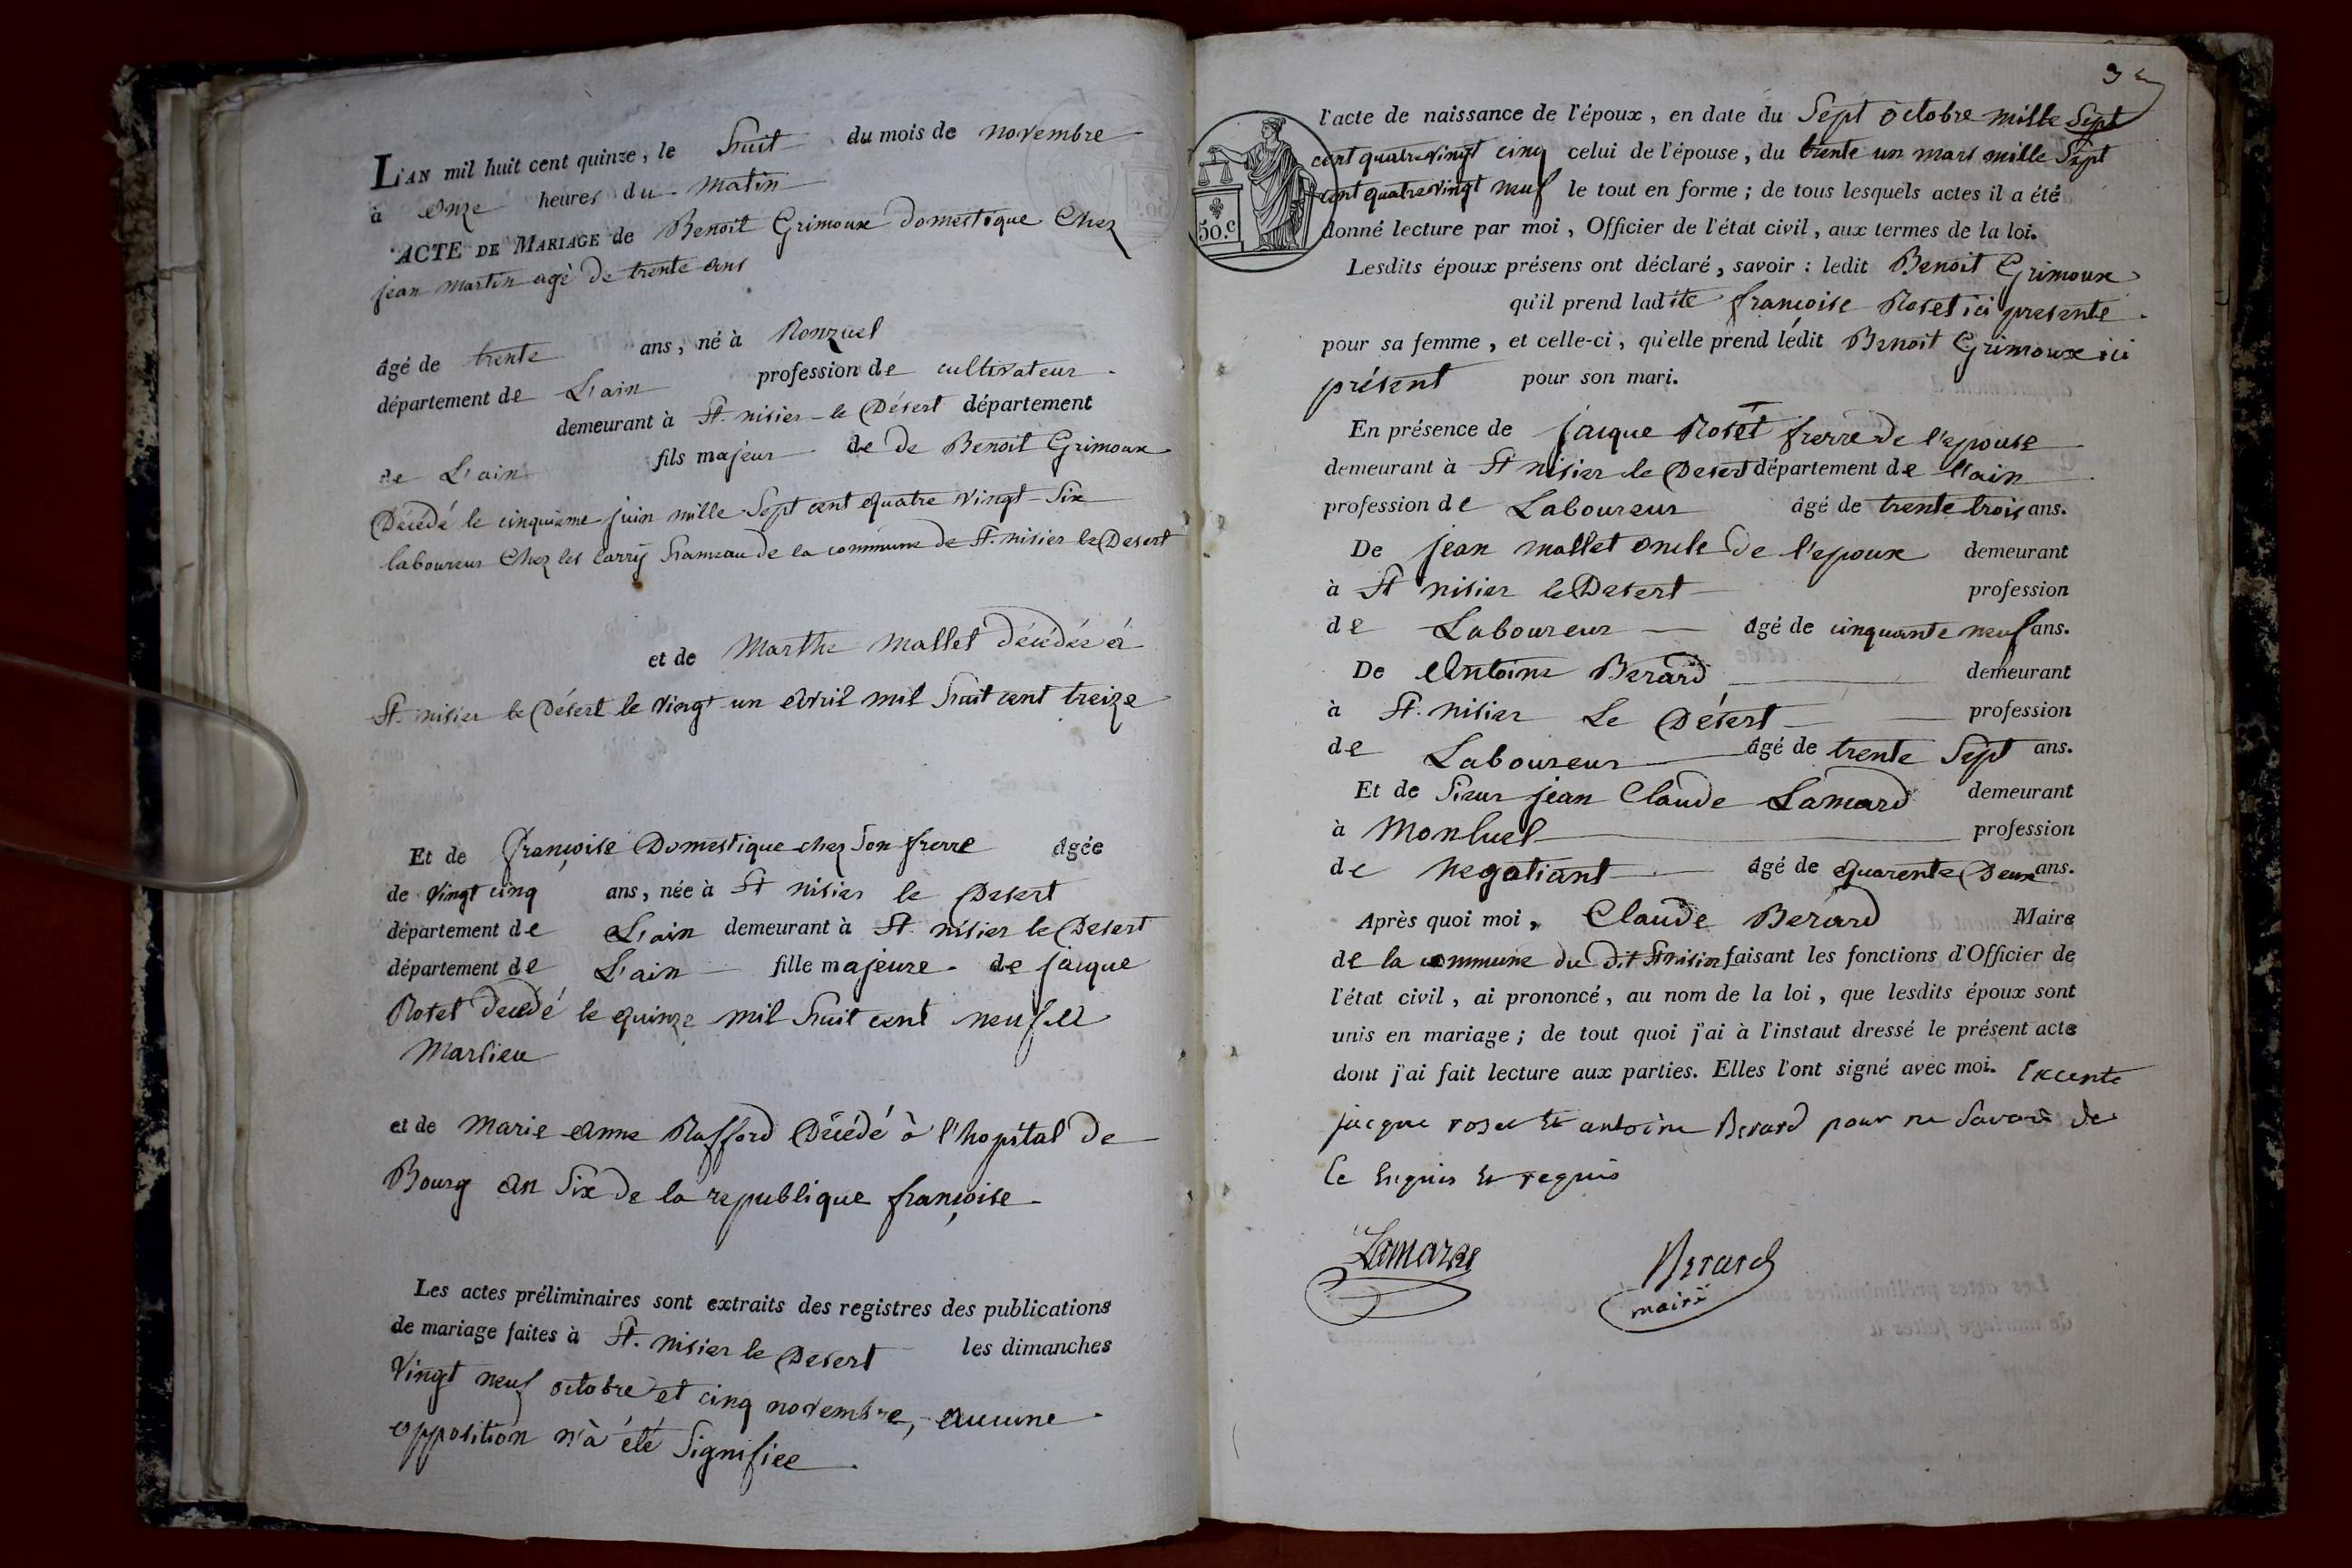 L'AN mil huit cent quinze, le huit du mois de novembre
à onze heures du matin
ACTE DE MARIAGE de Benoit Grimoux domestique Chez
jean martin agè de trente ans
âgé de trente ans, né à Ronzuel
département de L'ain profession de cultivateur
demeurant à St. nisier le Désert département
de L'ain fils majeur de de Benoit Grimoux
Décédé le cinquième juin mille Sept cent quatre vingt Six
laboureur Chez les Carry hameau de la commune de St. nisier le Desert
et de Marthe Mallet décédée à
St. nisier le Désert le vingt un avril mil huit cent treize
Et de françoise Domestique chez Son frerre âgée
de vingt cinq ans, née à St nisier le Desert
département de L'ain demeurant à St. nisier le Desert
département de L'ain fille majeure de jacque
Roset decédé le quinze mil huit cent neuf à
Marlieu
et de Marie Anne Rafford Décédé à l'hopital de
Bourg an Six de la republique françoise
Les actes préliminaires sont extraits des registres des publications
de mariage faites à St. nisier le Desert les dimanches
vingt neuf octobre et cinq novembre, aucune
opposition n'à été Signifiee
3
l'acte de naissance de l'époux, en date du Sept octobre mille Sept
cent quatre vingt cinq celui de l'épouse, du trente un mars mille Sept
cent quatre vingt neuf le tout en forme; de tous lesquels actes il a été
donné lecture par moi, Officier de l'état civil, aux termes de la loi.
50.c
Lesdits époux présens ont déclaré, savoir: ledit Benoit Grimoux
qu'il prend ladite françoise Roset ici presente
pour sa femme, et celle-ci, qu'elle prend lédit Benoit Grimoux ici
présent pour son mari.
En présence de jacque Roset frerre de l'epouse
demeurant à St nisier le Desert département de l'ain
profession de Laboureur âgé de trente trois ans.
De jean mallet oncle de l'epoux demeurant
à St nisier le Desert profession
de Laboureur âgé de cinquante neuf ans.
De Antoine Berard demeurant
à St. nisier Le Désert profession
de Laboureur âgé de trente Sept ans.
Et de Sieur jean Claude Lamard demeurant
à Monluel profession
de negotiant âgé de quarente Deux ans.
Après quoi moi, Claude Berard Maire
de la commune du dit St nisier faisant les fonctions d'Officier de
l'état civil, ai prononcé, au nom de la loi, que lesdits époux sont
unis en mariage; de tout quoi j'ai à l'instaut dressé le présent acte
dont j'ai fait lecture aux parties. Elles l'ont signé avec moi. Excepté
jacque roset et antoine Berard pour ne Savoir de
Ce Enquis et requis
Lamarde Berard
maire